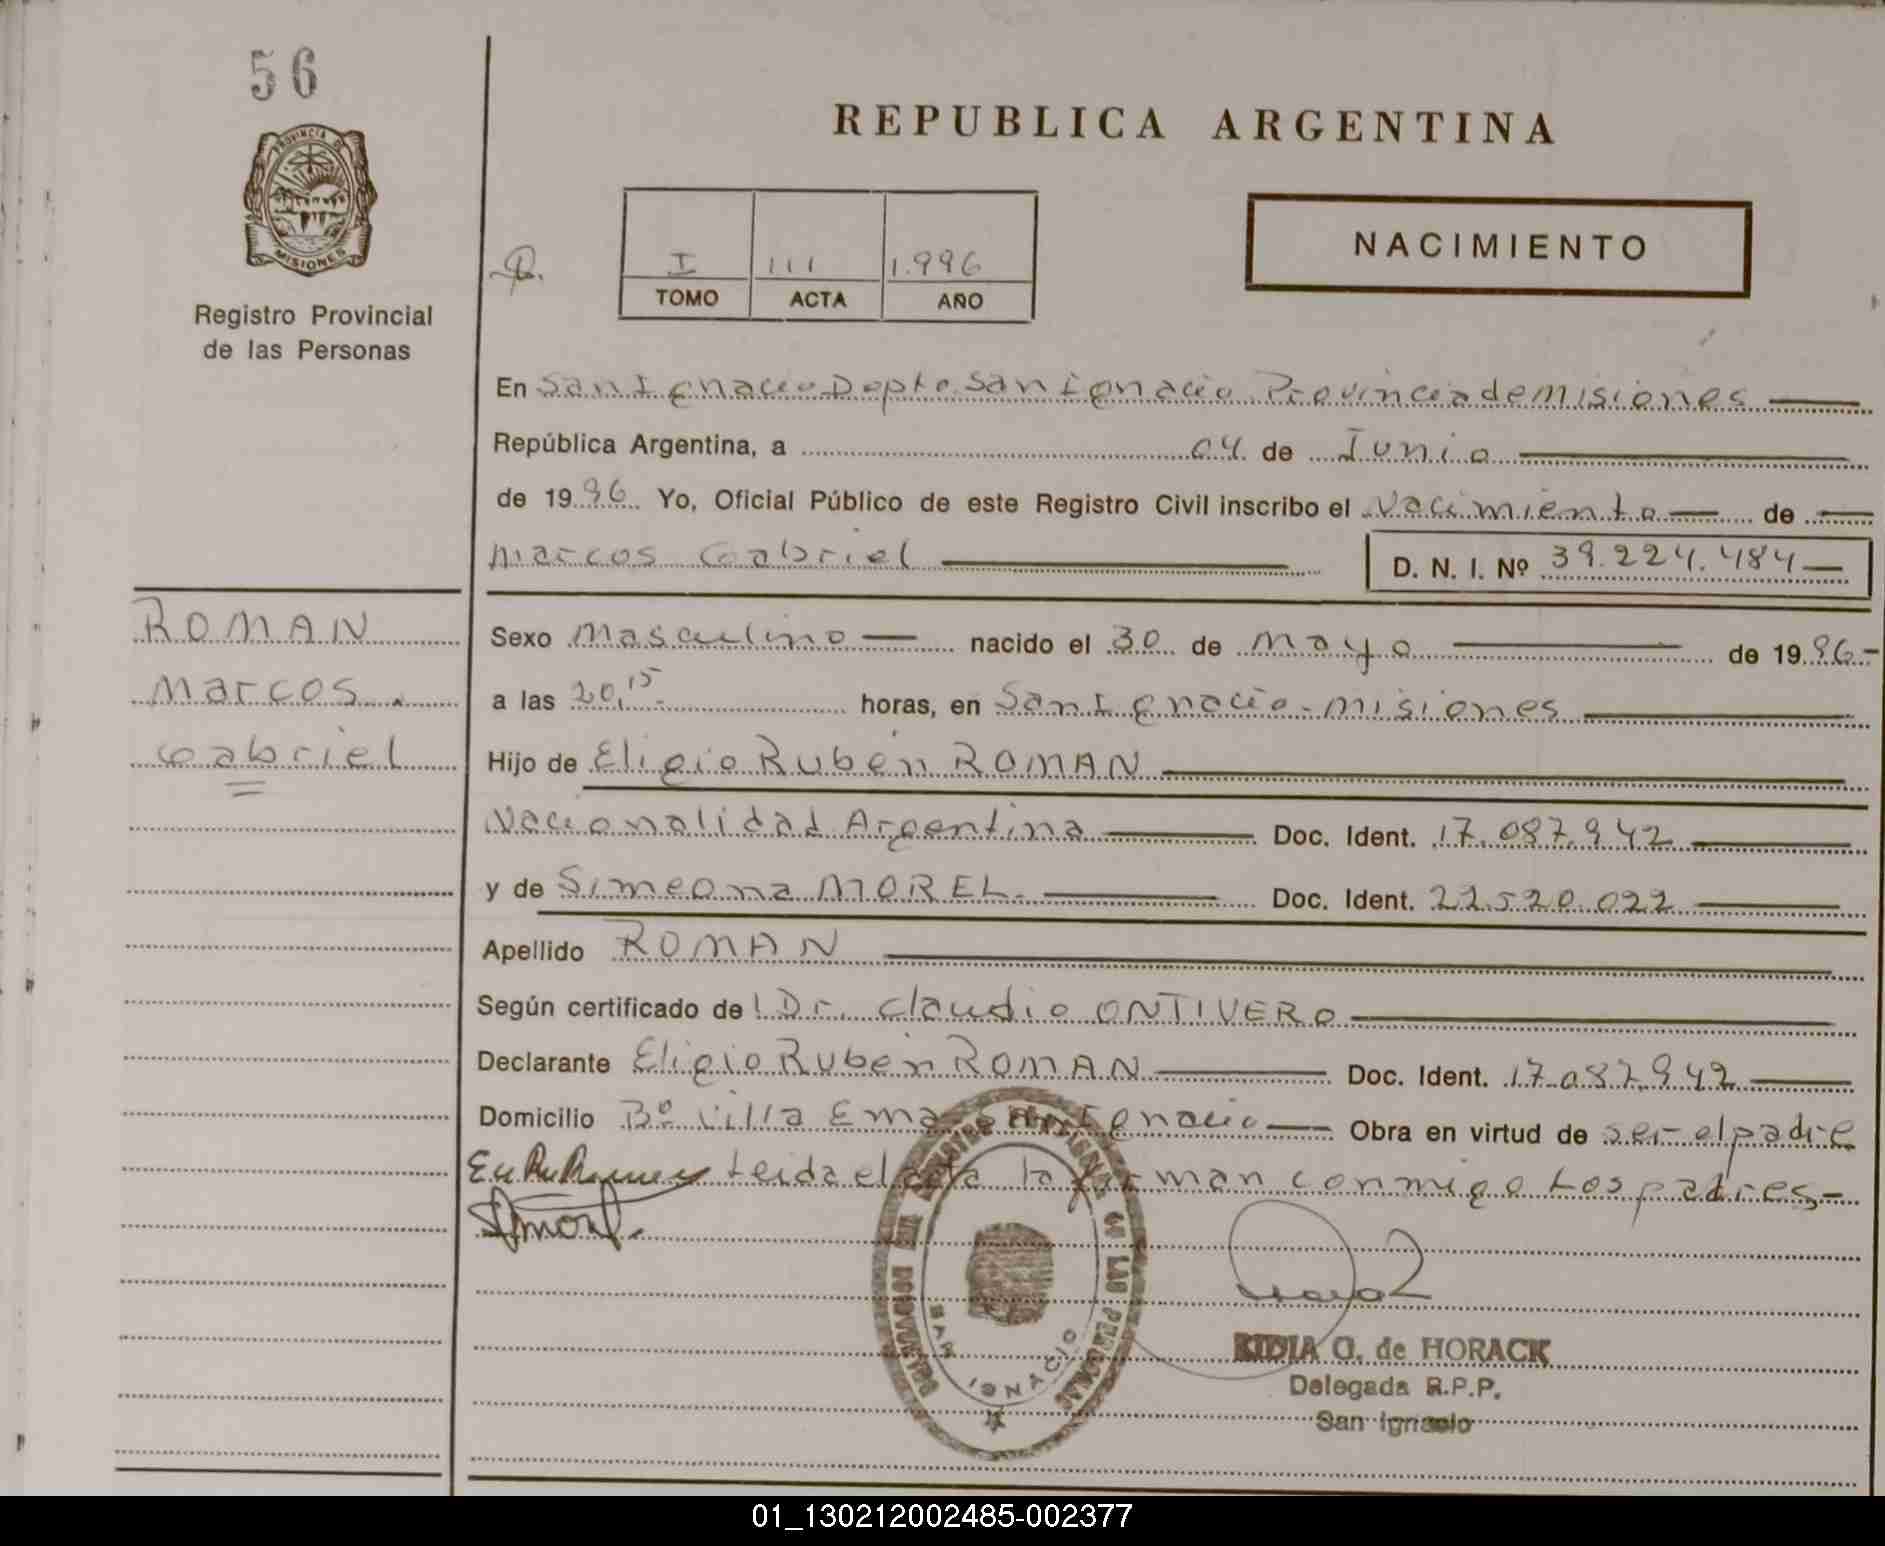 56
PROVINCIA DE
MISIONES
Registro Provincial
de las Personas
REPUBLICA ARGENTINA
I 111 1.996
TOMO ACTA AÑO
NACIMIENTO
En San Ignacio Depto. San Ignacio Provincia de Misiones
República Argentina, a 04 de Junio
de 1996 Yo, Oficial Público de este Registro Civil inscribo el Nacimiento de
Marcos Gabriel D. N. I. Nº 39.224.484
ROMAN
Marcos
Gabriel
Sexo Masculino nacido el 30 de Mayo de 1996
a las 20,15 horas, en San Ignacio - Misiones
Hijo de Eligio Rubén ROMAN
Nacionalidad Argentina Doc. Ident. 17.087.942
y de Simeona MOREL Doc. Ident. 22.520.022
Apellido ROMAN
Según certificado de Dr. Claudio ONTIVERO
Declarante Eligio Rubén ROMAN Doc. Ident. 17.087.942
Domicilio Bº Villa Ema San Ignacio Obra en virtud de ser el padre
Leida el acta la firman conmigo Los padres-
DE LAS PERSONAS
SAN IGNACIO
KIDIA O. de HORACK
Delegada R.P.P.
San Ignacio
01_130212002485-002377